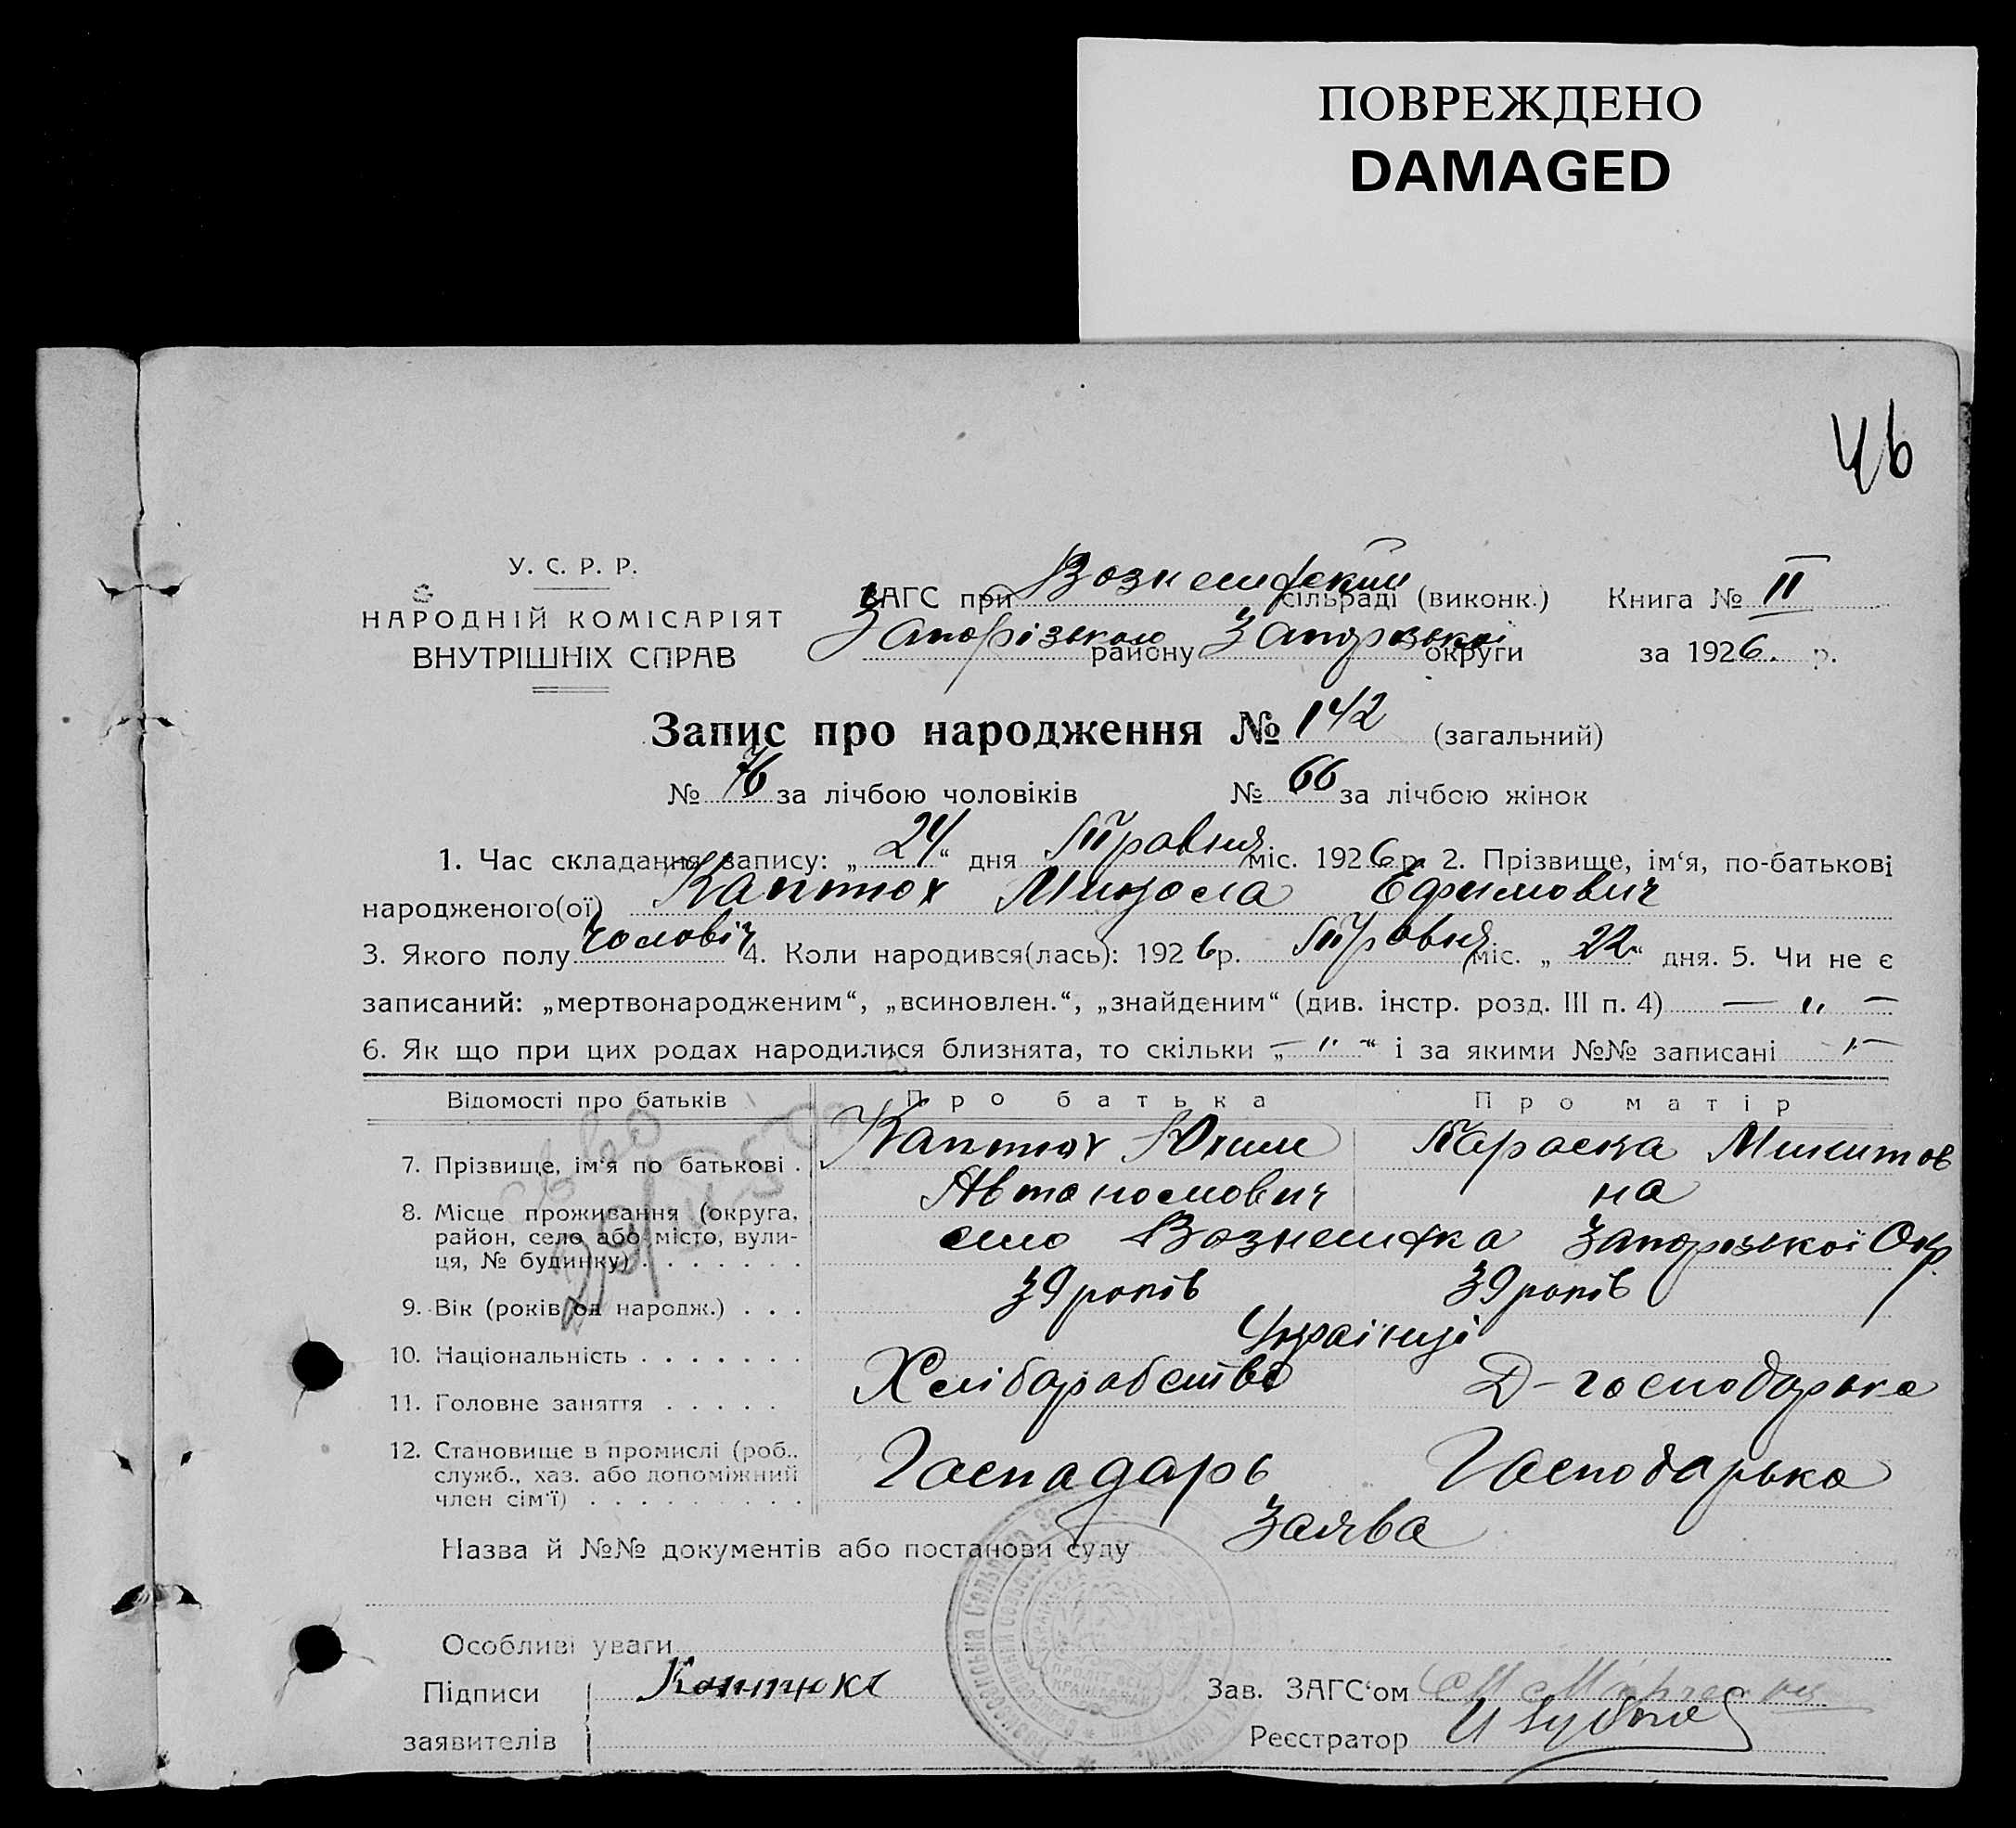 ПОВРЕЖДЕНО
DAMAGED
46
У. С. Р. Р.
НАРОДНІЙ КОМІСАРІЯТ
ВНУТРІШНІХ СПРАВ
ЗАГС при Вознесенський сільраді (виконк.) Книга № II
Запорізького району Запорозької округи за 1926. р.
Запис про народження № 142 (загальний)
№ 76 за лічбою чоловіків № 66 за лічбою жінок
1. Час складання запису: „24“ дня Травня міс. 1926 р. 2. Прізвище, ім‘я, по-батькові
народженого(ої) Каптюх Микола Ефимович
3. Якого полу чоловіч 4. Коли народився(лась): 1926 р. Травня міс. „22“ дня. 5. Чи не є
записаний: „мертвонародженим“, „всиновлен.“, „знайденим“ (див. інстр. розд. III п. 4) — „ —
6. Як що при цих родах народилися близнята, то скільки „— „ —“ і за якими №№ записані „—
Відомості про батьків Про батька Про матір
7. Прізвище, ім‘я по батькові . Каптюх Юхим Параска Микитов
Автономович на
8. Місце проживання (округа,
район, село або місто, вули-
ця, № будинку) . . . . . . . село Вознесенка Запорозької Окр
9. Вік (років од народж.) . . . 39 років 39 років
10. Національність . . . . . . . Українці
11. Головне заняття . . . . . Хліборобство Д-господарка
12. Становище в промислі (роб.,
служб., хаз. або допоміжний
член сім‘ї) . . . . . . . . . Господарь Господарька
Назва й №№ документів або постанови суду Заява
Особливі уваги
Підписи
заявителів
Зав. ЗАГС‘ом
Реєстратор